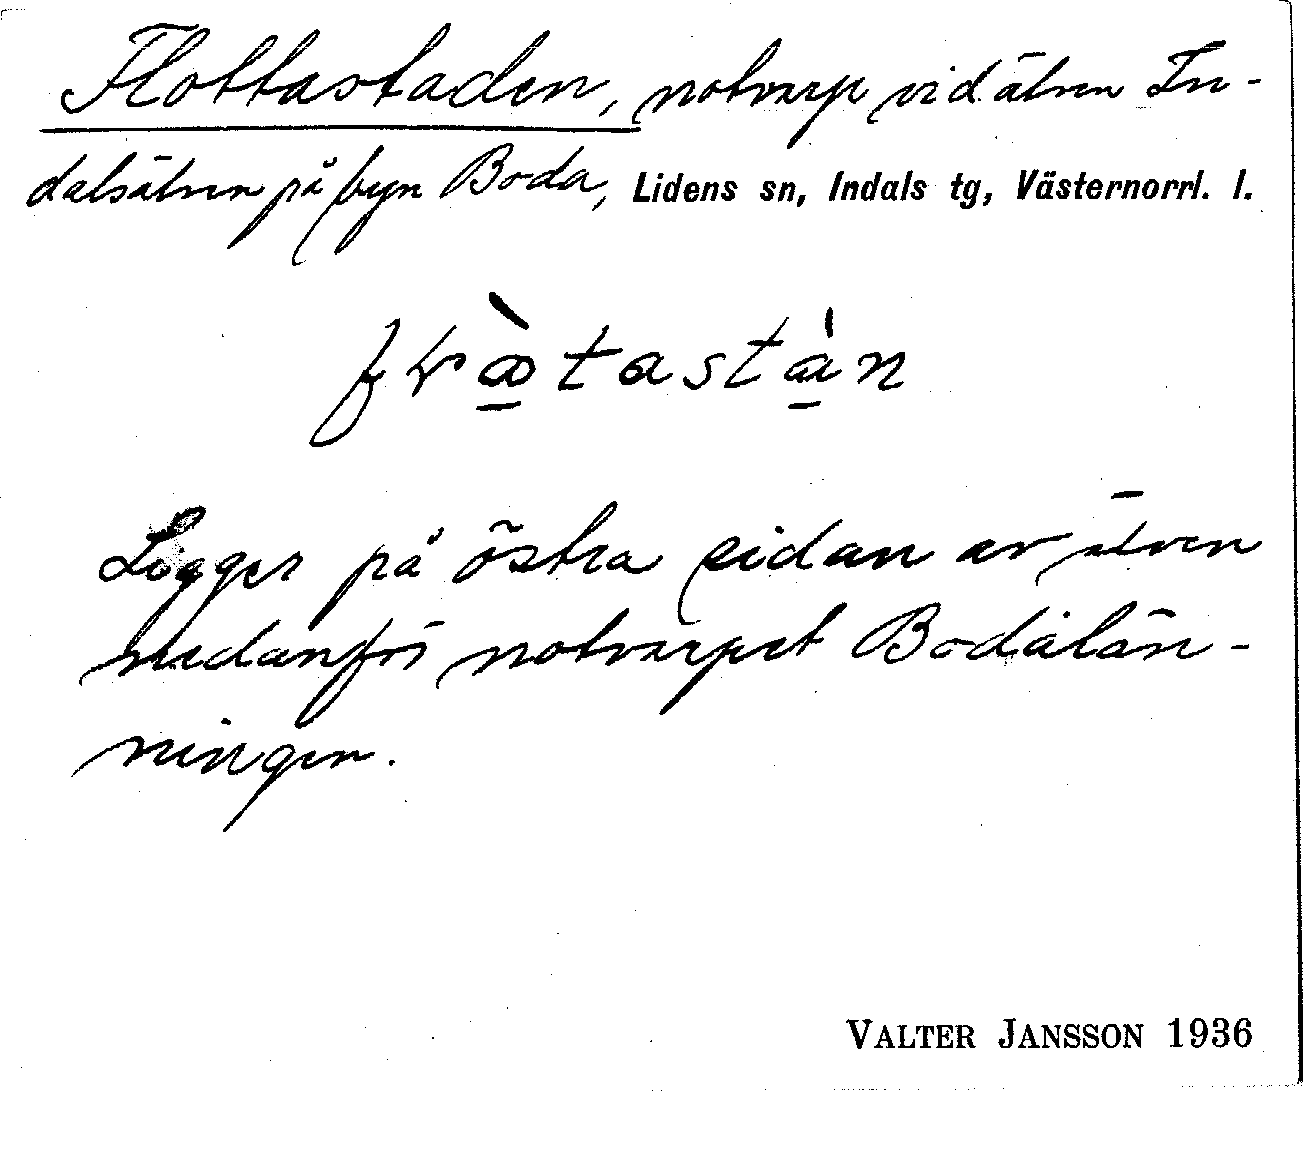 Flottastaden, notvarp vid älven In-
dalsälven på byn Boda, Lidens sn, Indals tg, Västernorrl. l.
Ligger på östra sidan av älven
nedanför notvarpet Bodälän-
ningen.
VALTER JANSSON 1936